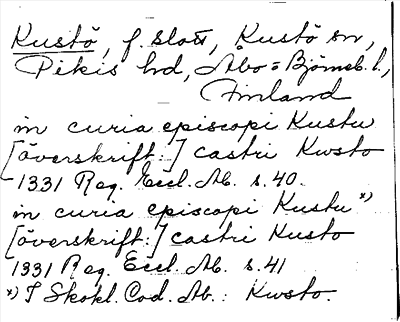 Kustö, f. slott, Kustö sn,
Pikis hd, Åbo = Björneb. l.,
Finland
in curia episcopi Kustu
[överskrift:] castri Kwsto
1331 Reg. Eccl. Ab. s. 40.
in curia episcopi Kustu x)
[överskrift:] castri Kusto
1331 Reg. Eccl. Ab. s. 41
x) I Skokl. Cod. Ab.: Kwsto.